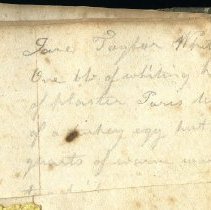 Jane Taylor Whit
One lb of whiting h
of plaster Paris
of a turkey egg but
quarts of warm wa